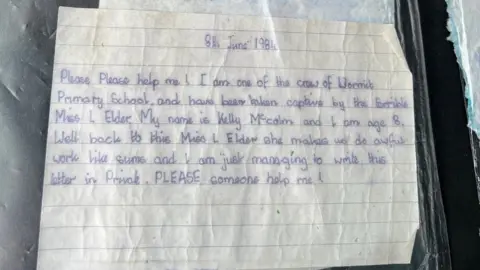 8th June 1981
Please Please help me! I am one of the crew of Wormit
Primary School, and have been taken captive by the terrible
Miss L Elder My name is Kelly McColm and I am age 8.
Well back to this Miss L Elder she makes us do awful
work like sums and I am just managing to write this
letter in Private. PLEASE someone help me!